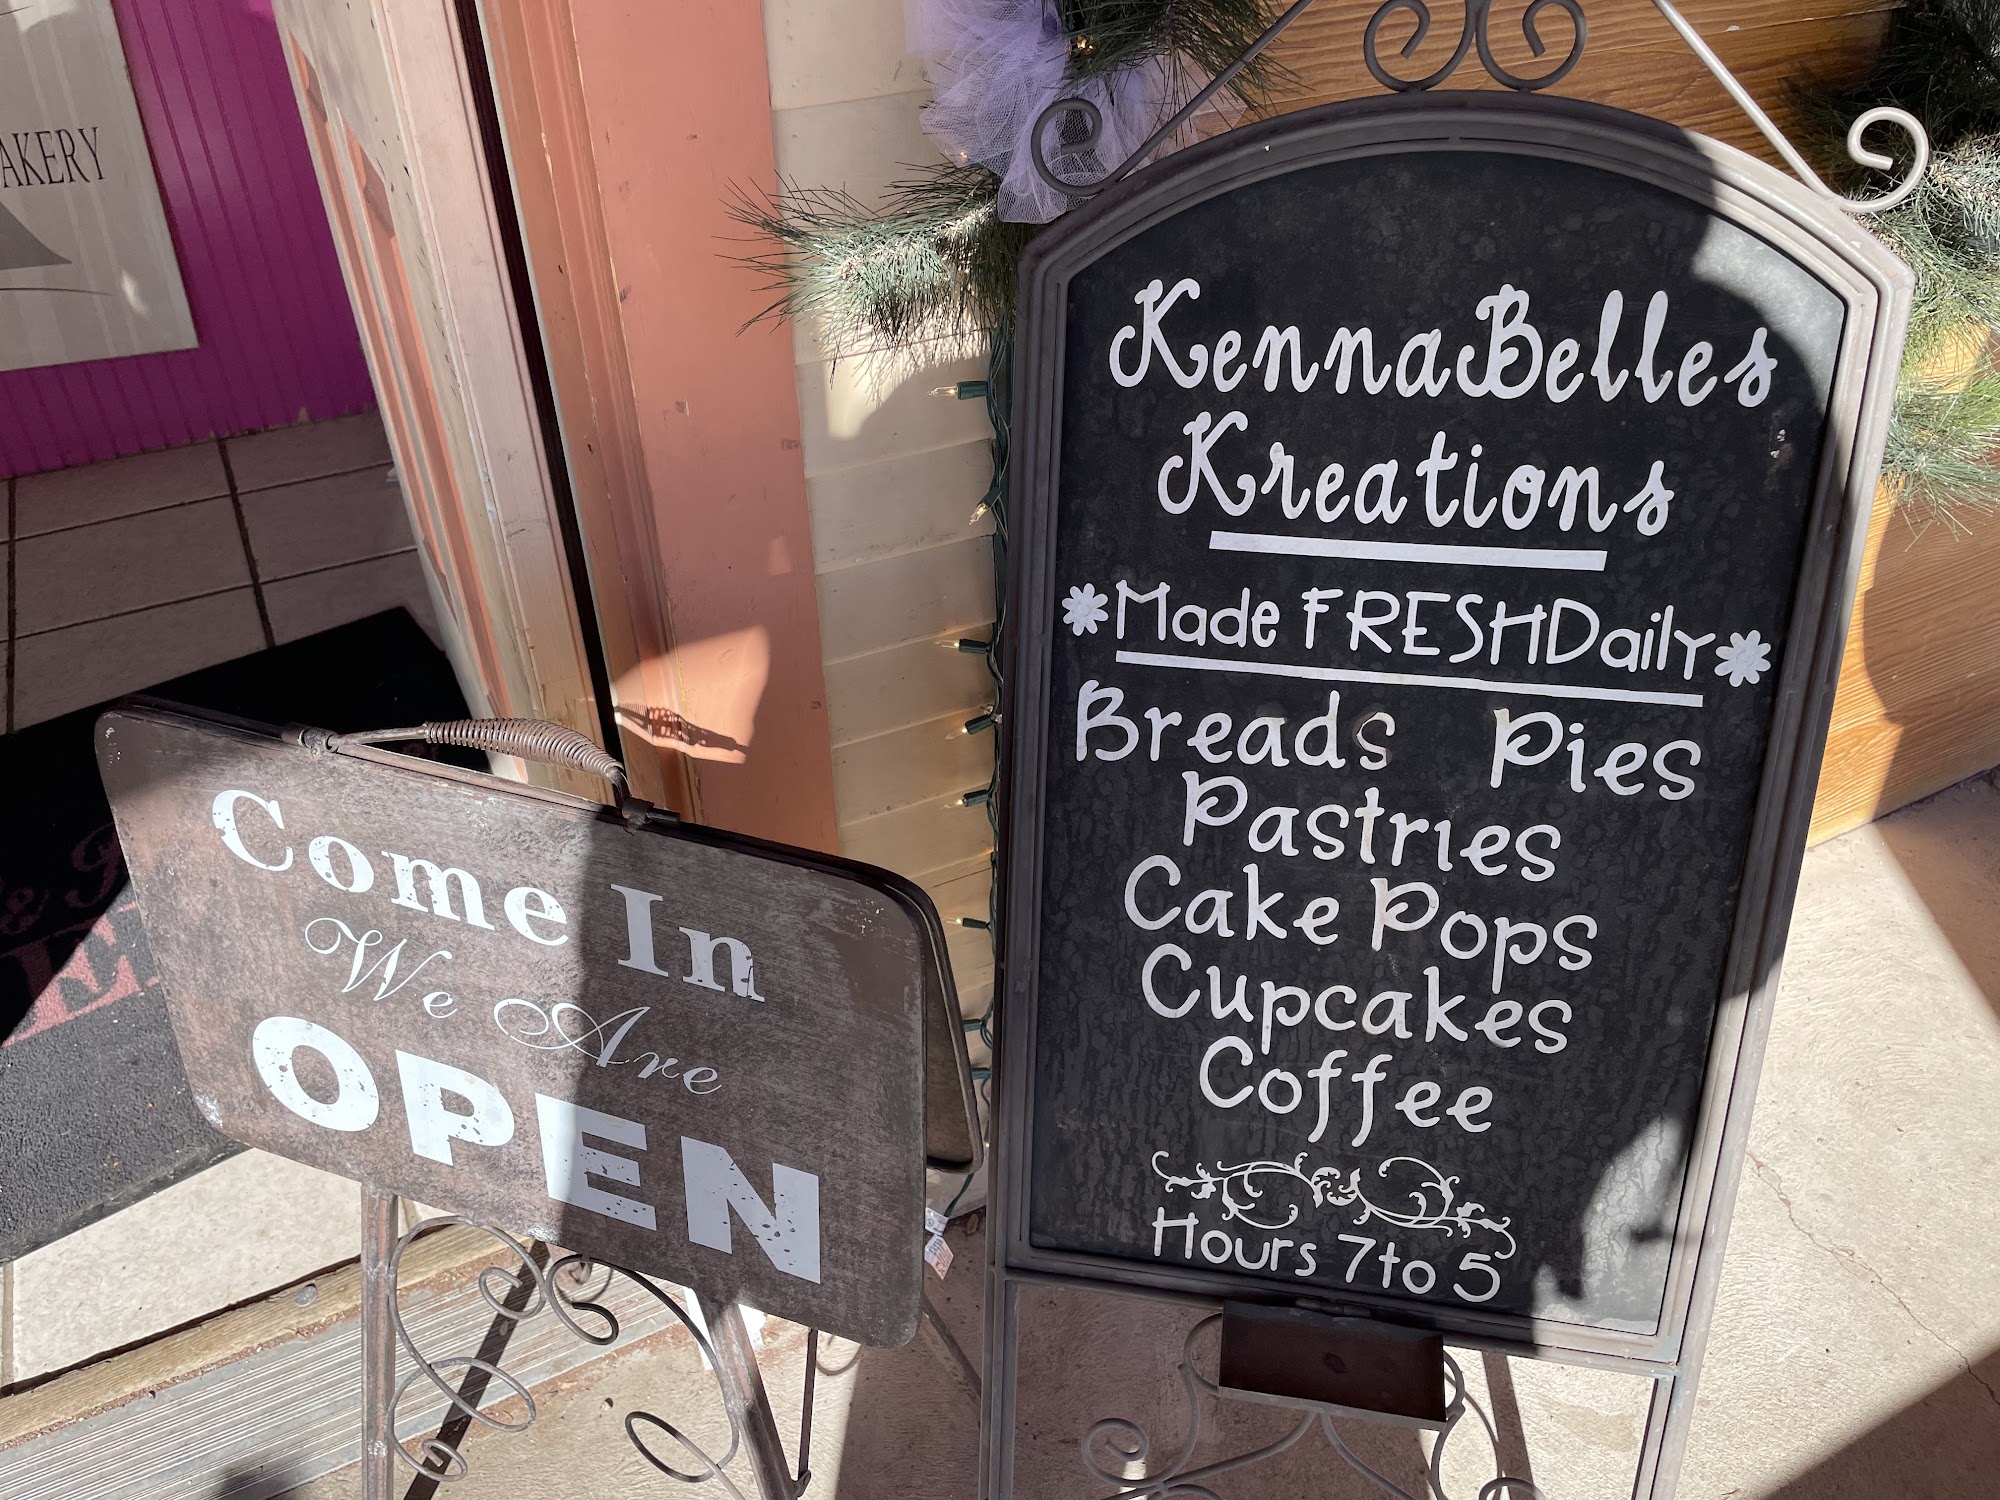 AKERY
Come In
We Are
OPEN
KennaBelles
Kreations
Made FRESH Daily
Breads Pies
Pastries
Cake Pops
Cupcakes
Coffee
Hours 7 to 5